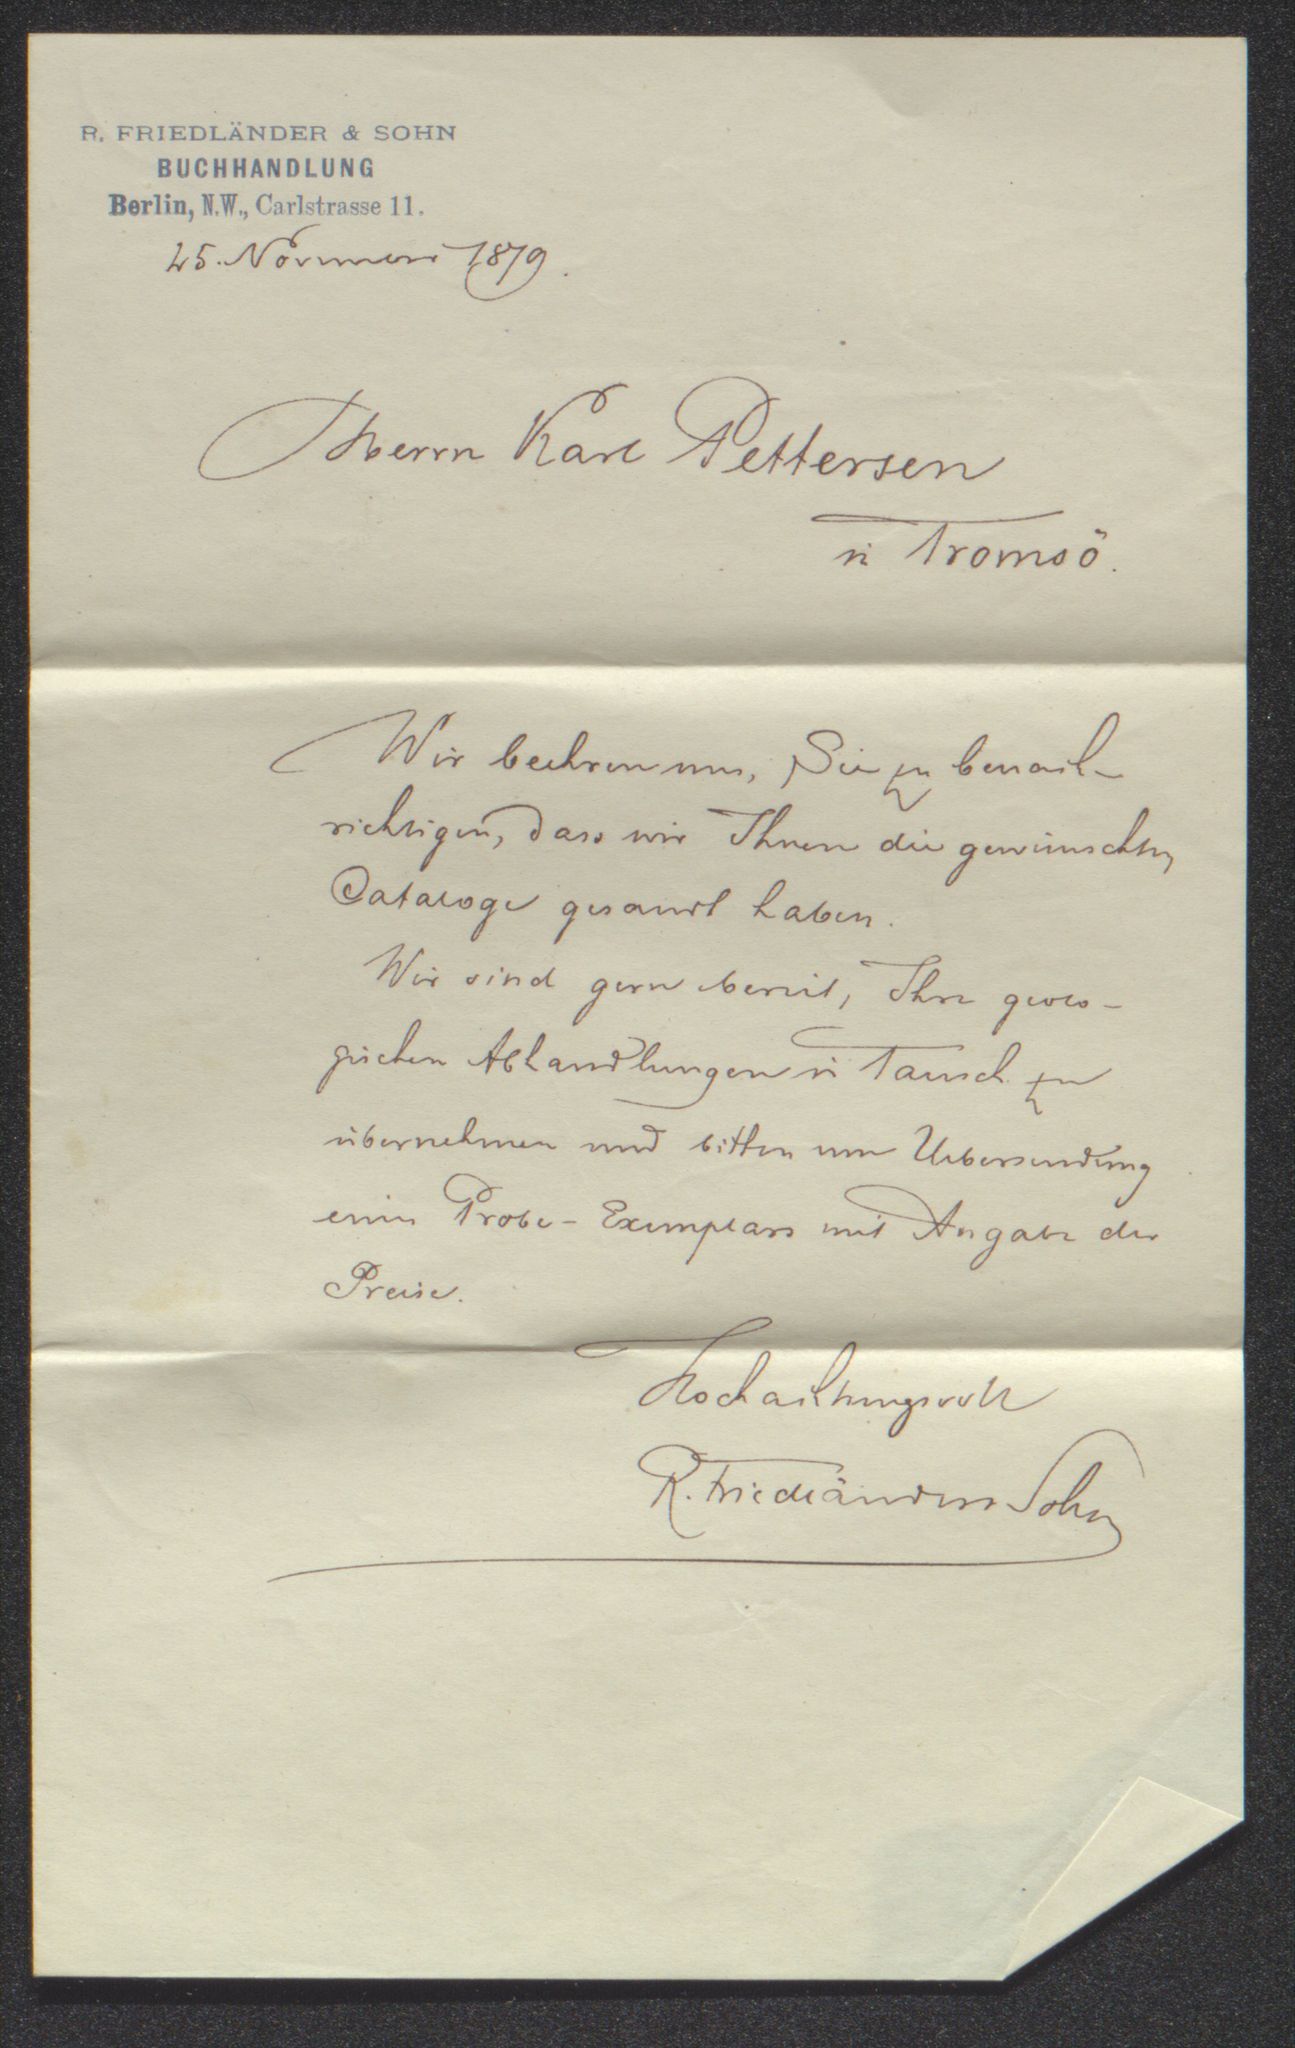 R. FRIEDLÄNDER & SOHN
BUCHHANDLUNG
Berlin, N.W., Carlstrasse 11.
25. November 1879.
Herrn Karl Pettersen
in Tromsö.
Wir beehren uns, Sie zu benach-
richtigen, dass wir Ihnen die gewünschten
Cataloge gesandt haben.
Wir sind gern bereit, Ihre geolo-
gischen Abhandlungen in Tausch zu
übernehmen und bitten um Uebersendung
eines Probe-Exemplars mit Angabe der
Preise.
Hochachtungsvoll
R. Friedländer Sohn